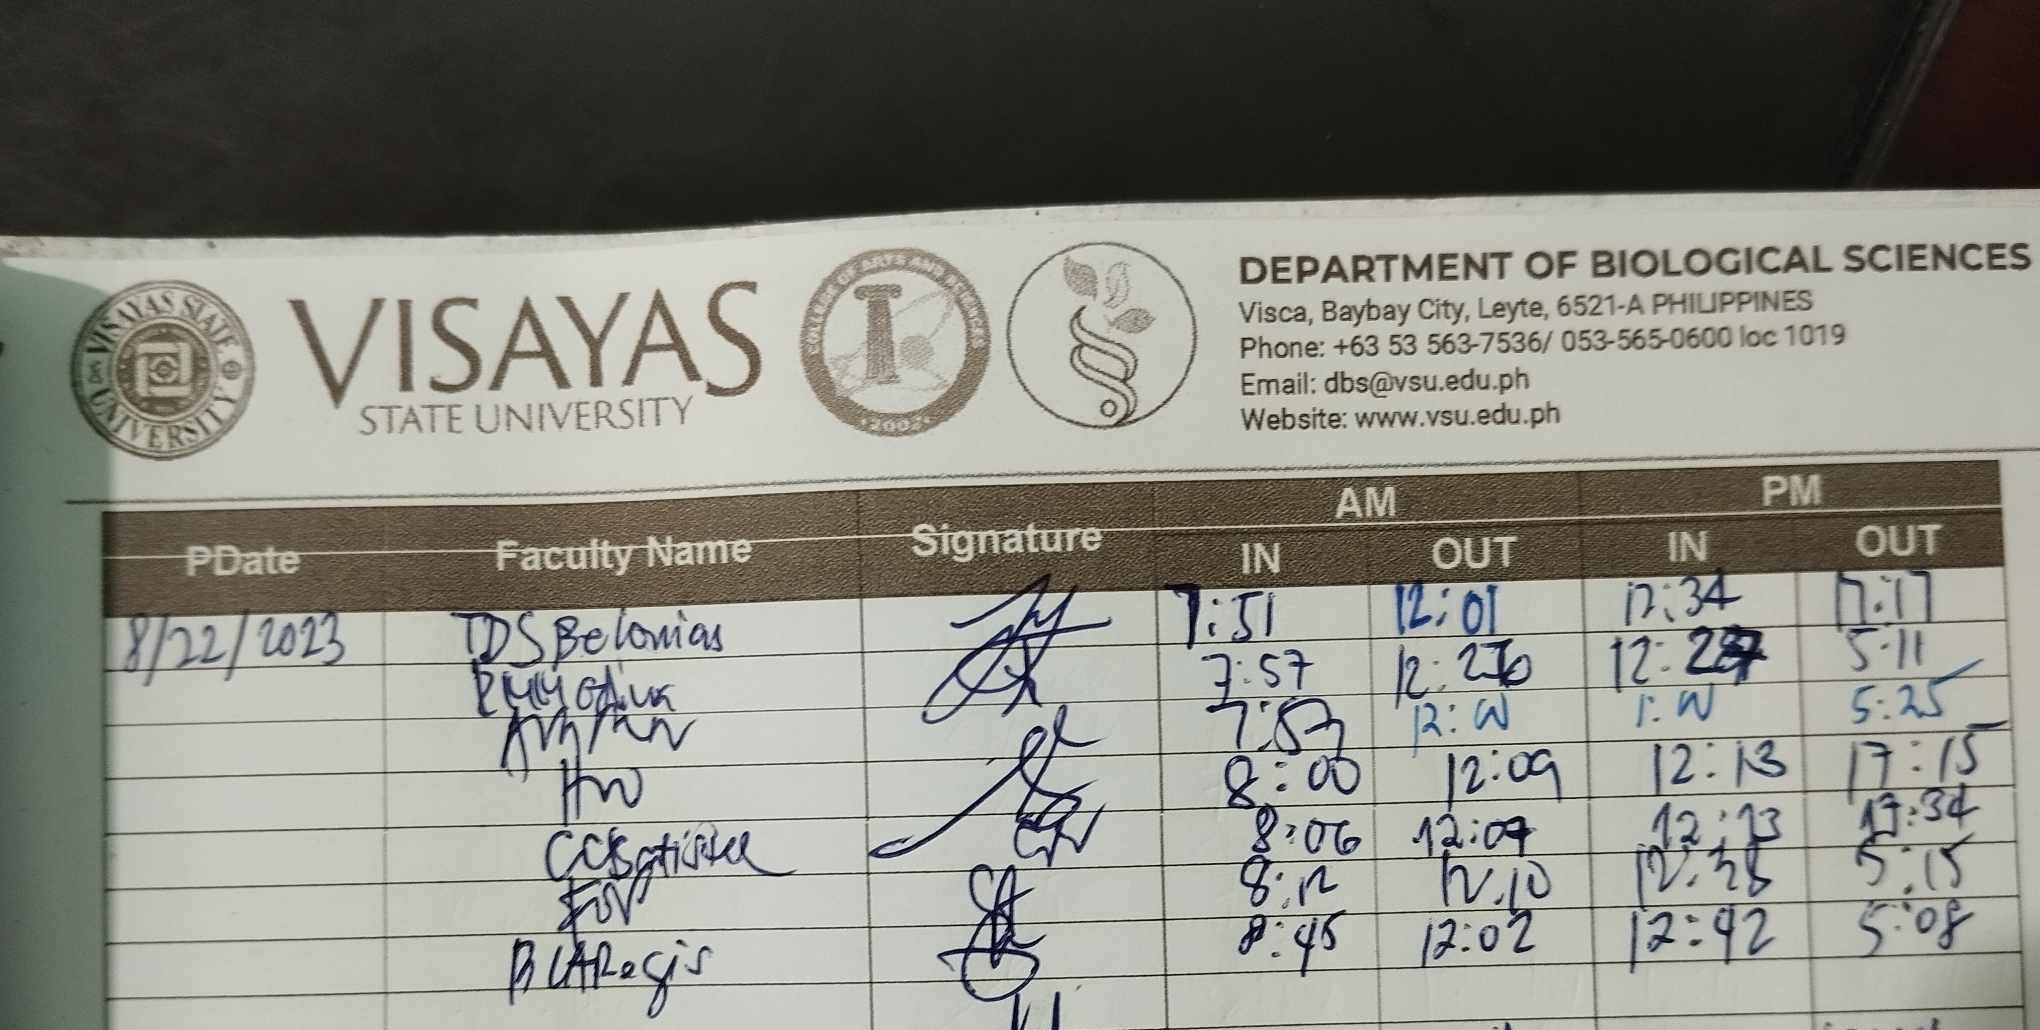 VISAYAS STATE UNIVERSITY
VISAYAS
STATE UNIVERSITY
COLLEGE OF ARTS AND SCIENCES
2002
DEPARTMENT OF BIOLOGICAL SCIENCES
Visca, Baybay City, Leyte, 6521-A PHILIPPINES
Phone: +63 53 563-7536/ 053-565-0600 loc 1019
Email: dbs@vsu.edu.ph
Website: www.vsu.edu.ph
AM PM
PDate Faculty Name Signature IN OUT IN OUT
8/22/2023 TDSBelonias 7:51 12:01 12:34 17:17
7:57 5:11
7:53 5:25
8:00 12:09 12:13 17:15
CCBatistel 8:06 12:07 12:13 17:34
8:12 12.10 12:38 5:15
BLARegis 8:45 12:02 12:42 5:08